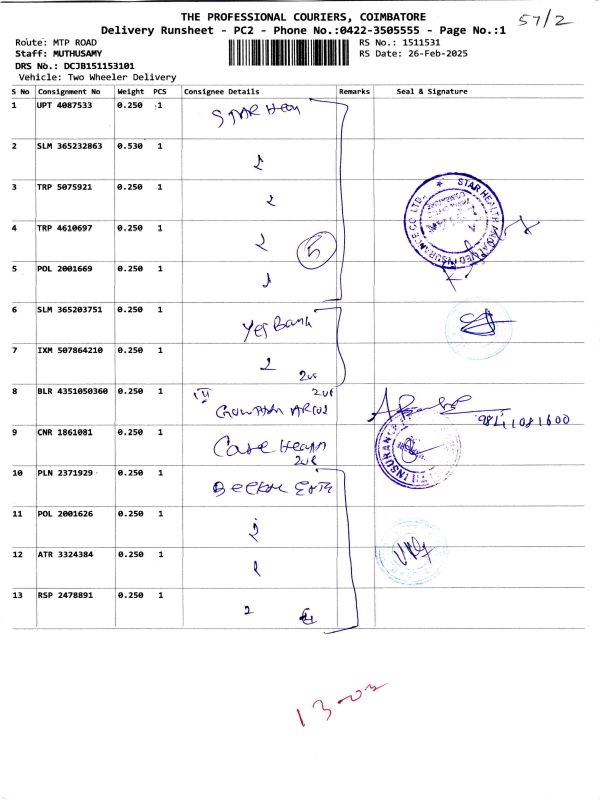 THE PROFESSIONAL COURIERS, COIMBATORE
57/2
Delivery Runsheet - PC2 - Phone No.:0422-3505555 - Page No.:1
Route: MTP ROAD
RS No.: 1511531
Staff: MUTHUSAMY
RS Date: 26-Feb-2025
DRS No.: DCJB151153101
Vehicle: Two Wheeler Delivery
S No Consignment No Weight PCS Consignee Details Remarks Seal & Signature
1 UPT 4087533 0.250 1 STAR Hea
2 SLM 365232863 0.530 1
3 TRP 5075921 0.250 1
STAR HEALTH AND ALLIED INSURANCE CO. LTD.
4 TRP 4610697 0.250 1
5
5 POL 2001669 0.250 1
6 SLM 365203751 0.250 1 Yes Bank
7 IXM 507864210 0.250 1
8 BLR 4351050360 0.250 1
98411081600
9 CNR 1861081 0.250 1 Care Health
INSURANCE
10 PLN 2371929 0.250 1
11 POL 2001626 0.250 1
12 ATR 3324384 0.250 1
13 RSP 2478891 0.250 1
4
13-02